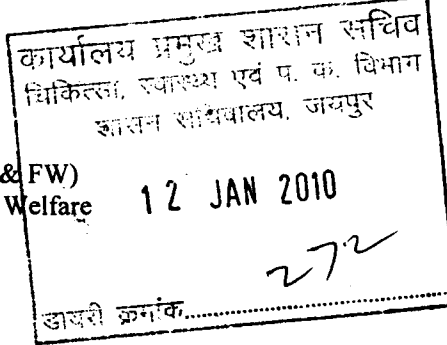 कार्यालय प्रमुख शासन सचिव
चिकित्सा, स्वास्थ्य एवं प. क. विभाग
शासन सचिवालय, जयपुर
& FW)
Welfare
12 JAN 2010
272
डायरी क्रमांक..............................